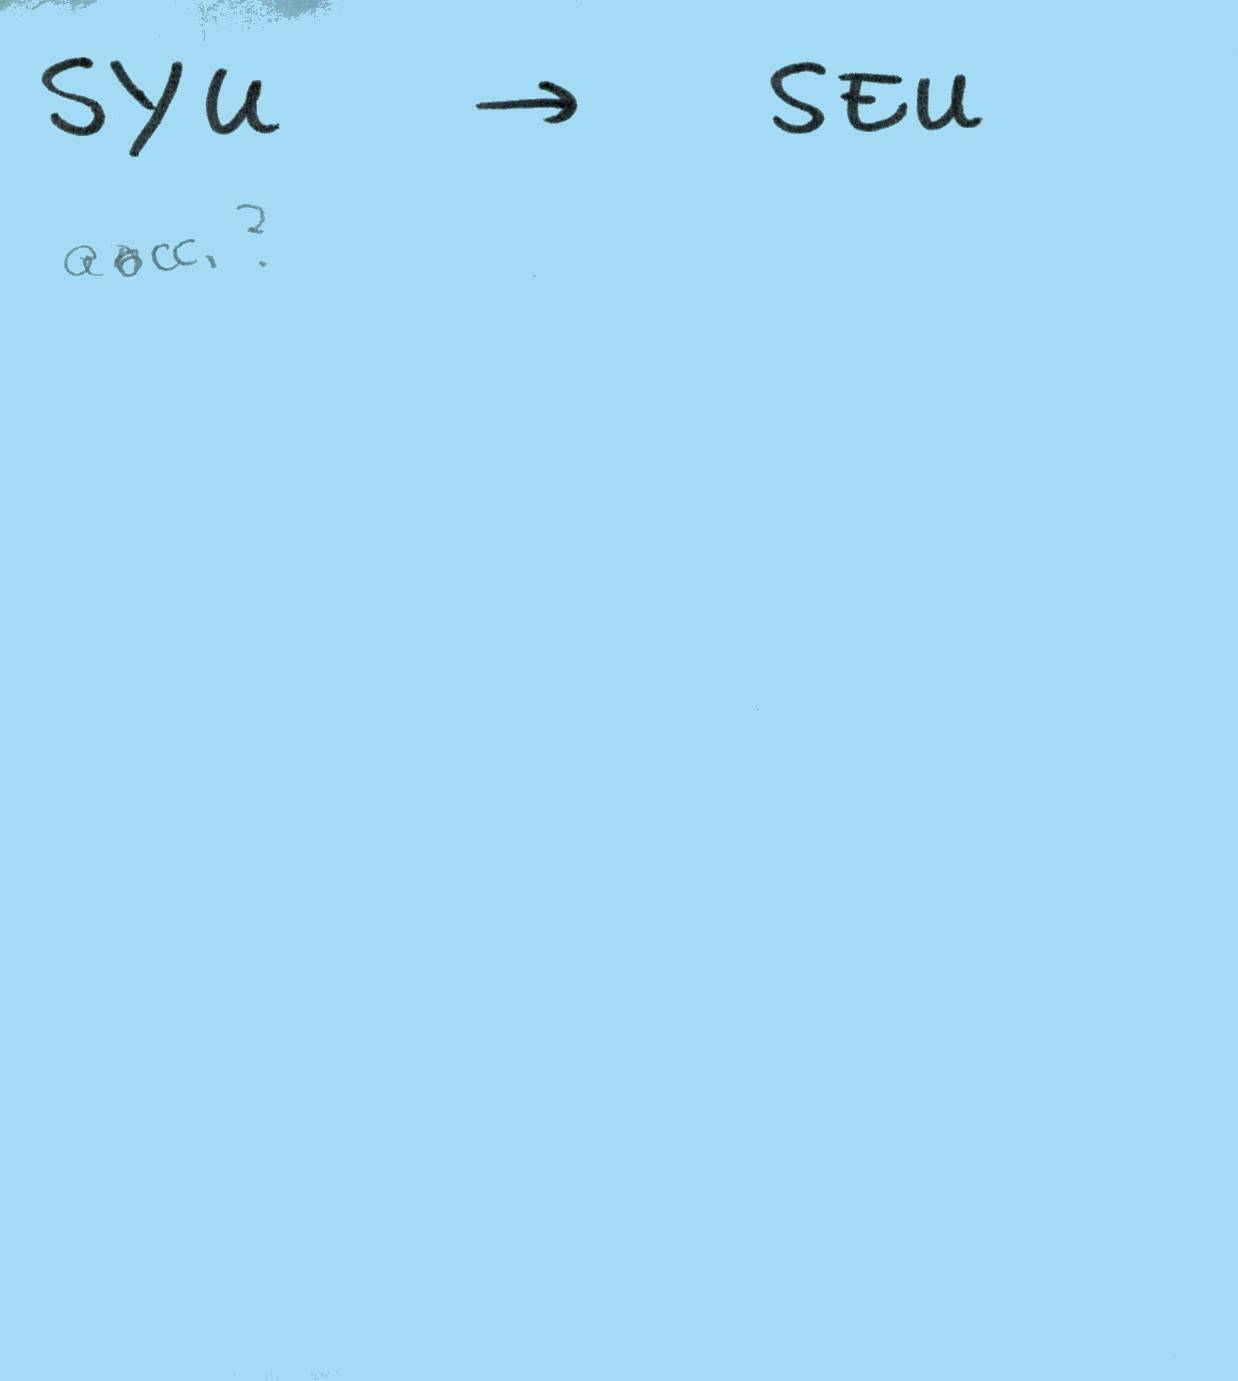 SYU → SEU
acc. ?